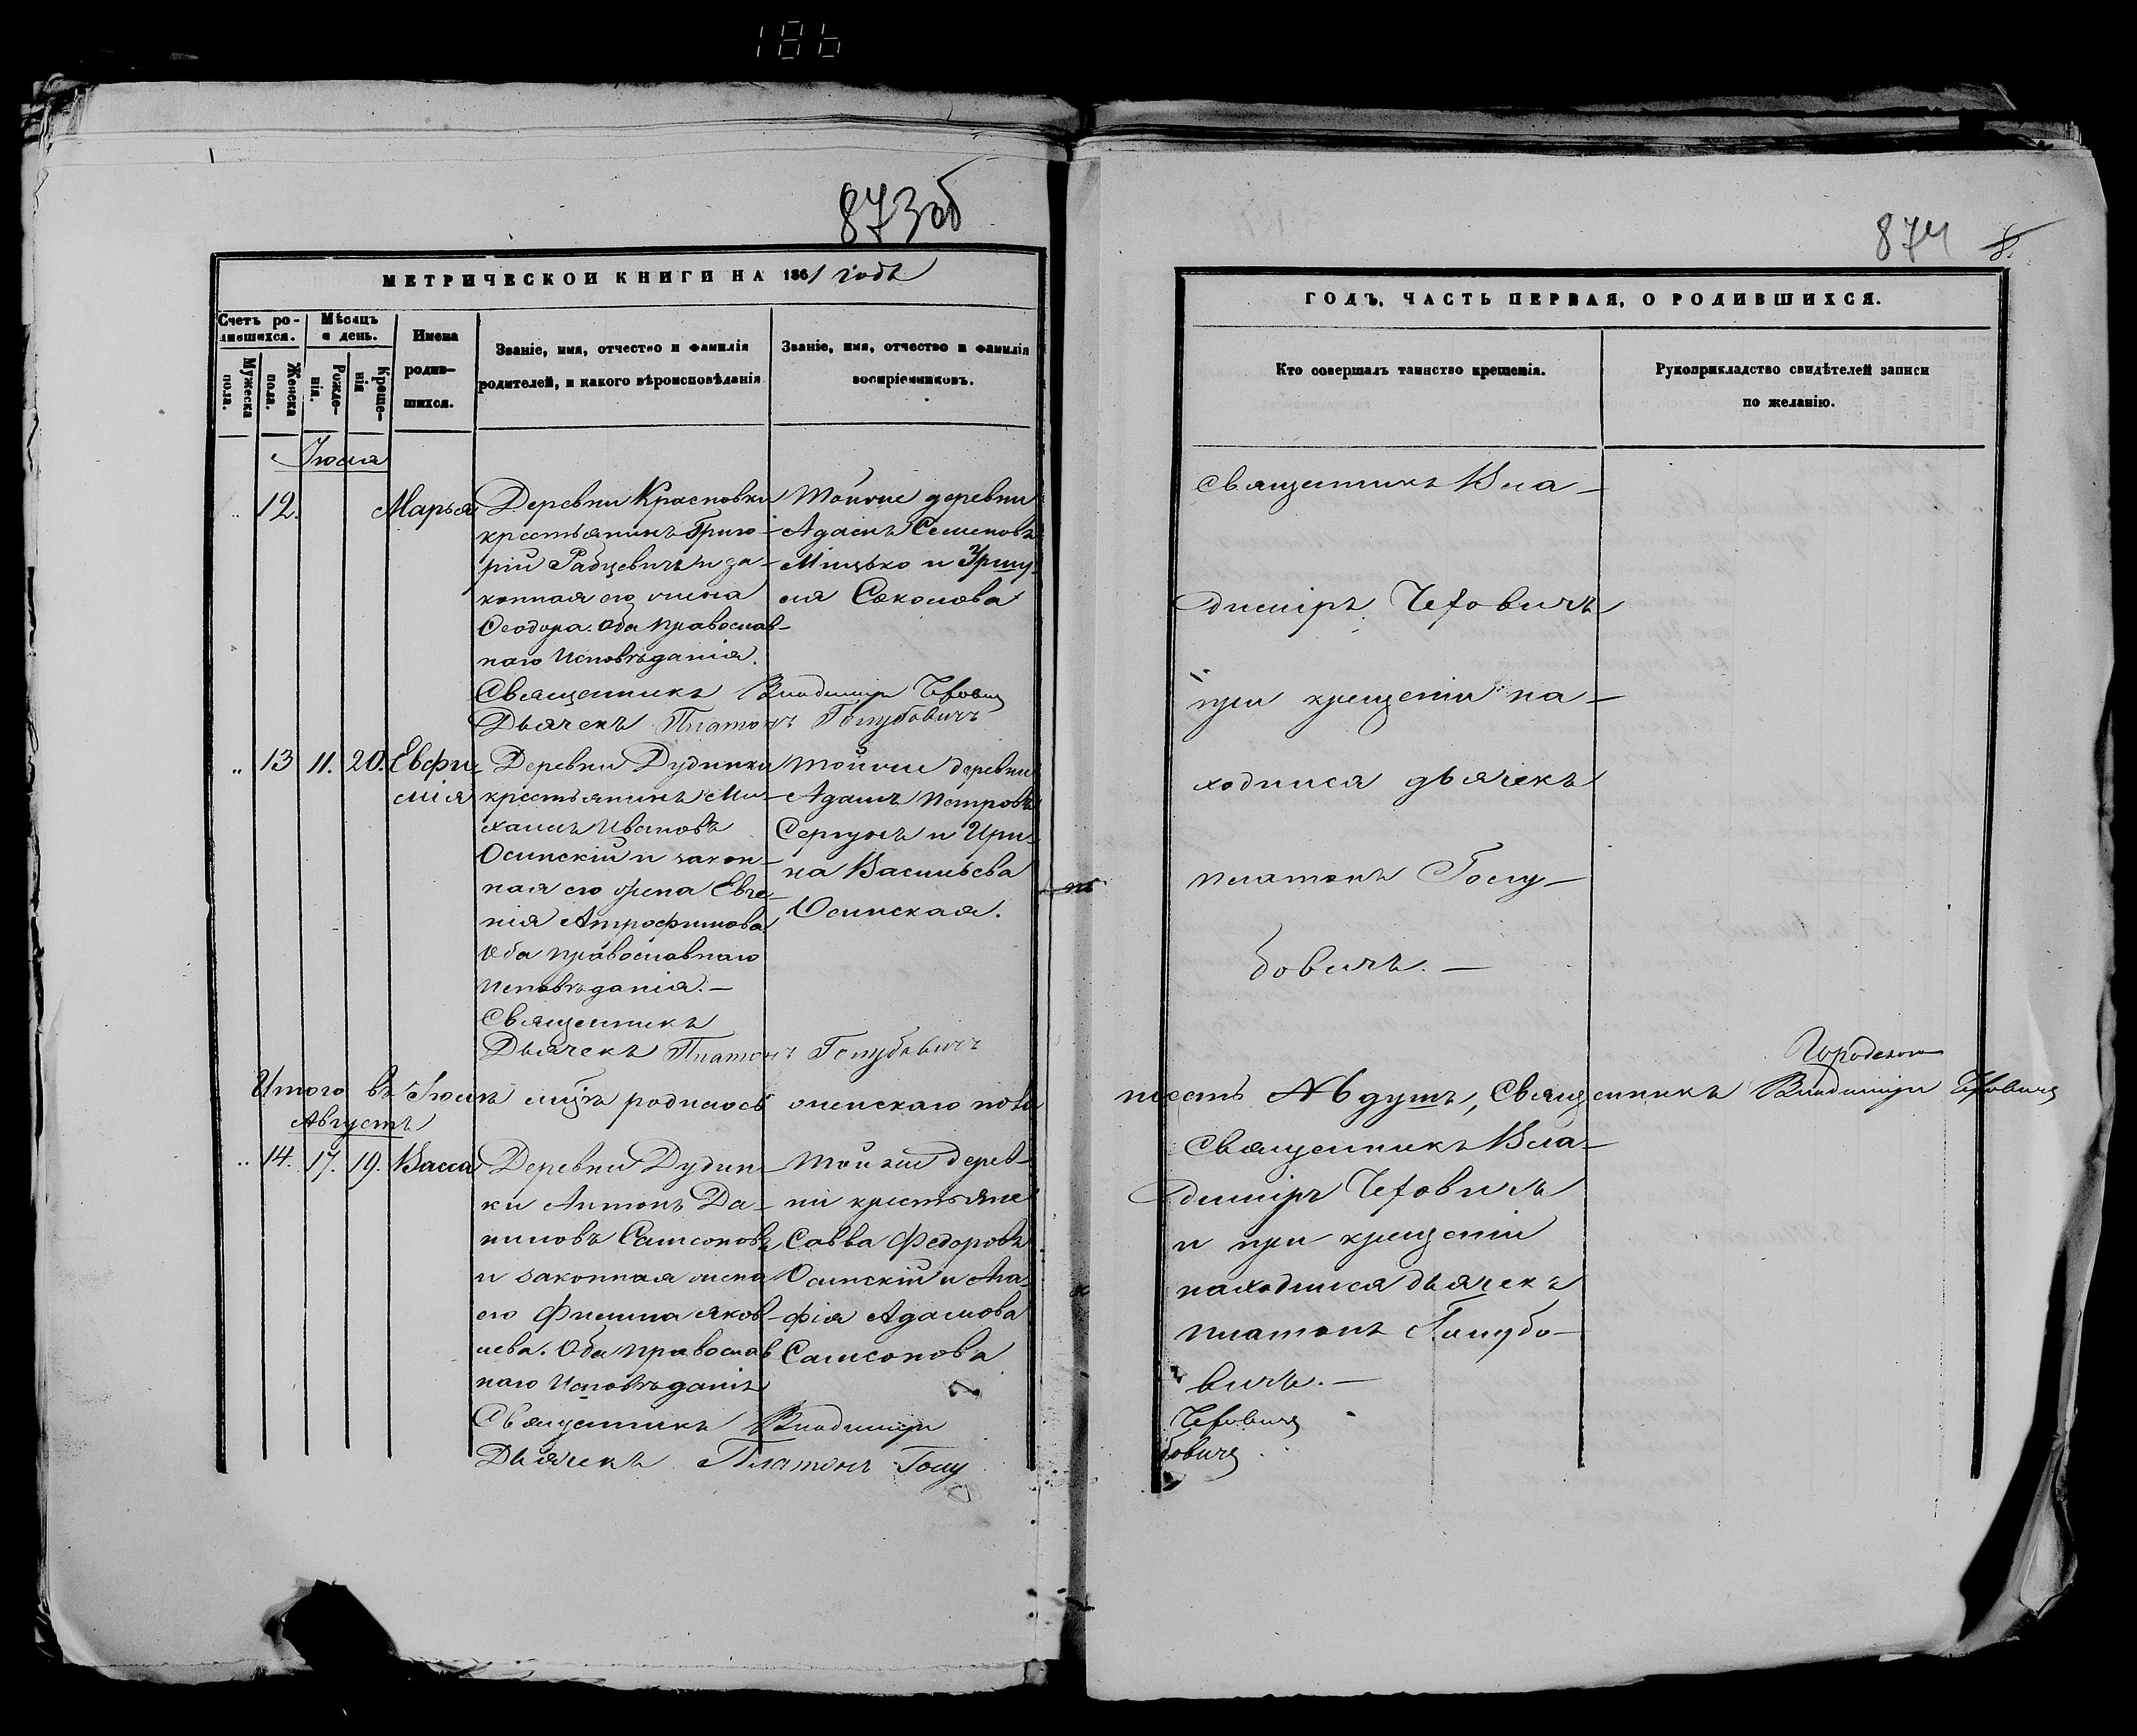 186
873об
МЕТРИЧЕСКОЙ КНИГИ НА 1861 годъ
Счетъ ро-
дившихся.
Мѣсяцъ
и день.
Мужеска
пола.
Женска
пола.
Рожде-
нія.
Креще-
нія
Имена
родив-
шихся.
Званіе, имя, отчество и фамилія
родителей, и какого вѣроисповѣданія
Званіе, имя, отчество и фамилія
воспріемниковъ.
Іюля
12. Марья
Деревни Красновки
крестьянинъ Григо-
рій Рабцевичъ и за-
конная его жена
Ѳеодора. Оба православ-
наго исповѣданія.
Священникъ Владиміръ
Дьячекъ Платонъ Голубовичъ
Тойже деревни
Адамъ Семеновъ
и
ля
13 11. 20. Евфи-
мія
Деревни Дудинки
крестьянинъ Ми-
хаилъ Ивановъ
Осинскій и закон-
ная его жена Евге-
нія
Оба православнаго
исповѣданія.—
Священникъ
Дьячекъ Платонъ Голубовичъ
Тойже деревни
Адамъ Петровъ
Сергунъ и Ири-
на Васильева
Осинская.
Итого въ Іюлѣ родилось женскаго пола
Августъ
14. 17. 19. Васса
Деревни Дудин-
ки Антонъ Да-
ниловъ Самсоновъ
и законная жена
его Яков-
лева. Оба православ
наго исповѣданія
Священникъ Владиміръ
Дьячекъ Платонъ Голу
Тойже дерев-
ни крестьяне
Савва Федоровъ
Осинскій и Ага-
фія Адамова
Самсонова
874
ГОДЪ, ЧАСТЬ ПЕРВАЯ, О РОДИВШИХСЯ.
Кто совершалъ таинство крещенія.
Рукоприкладство свидѣтелей записи
по желанію.
Священникъ Вла-
диміръ
при крещеніи на-
ходился дьячекъ
Платонъ Голу-
бовичъ.—
шесть душъ, Священникъ Владиміръ
Священникъ Вла-
диміръ
и при крещеніи
находился дьячекъ
Платонъ Голубо-
вичъ.—
бовичъ